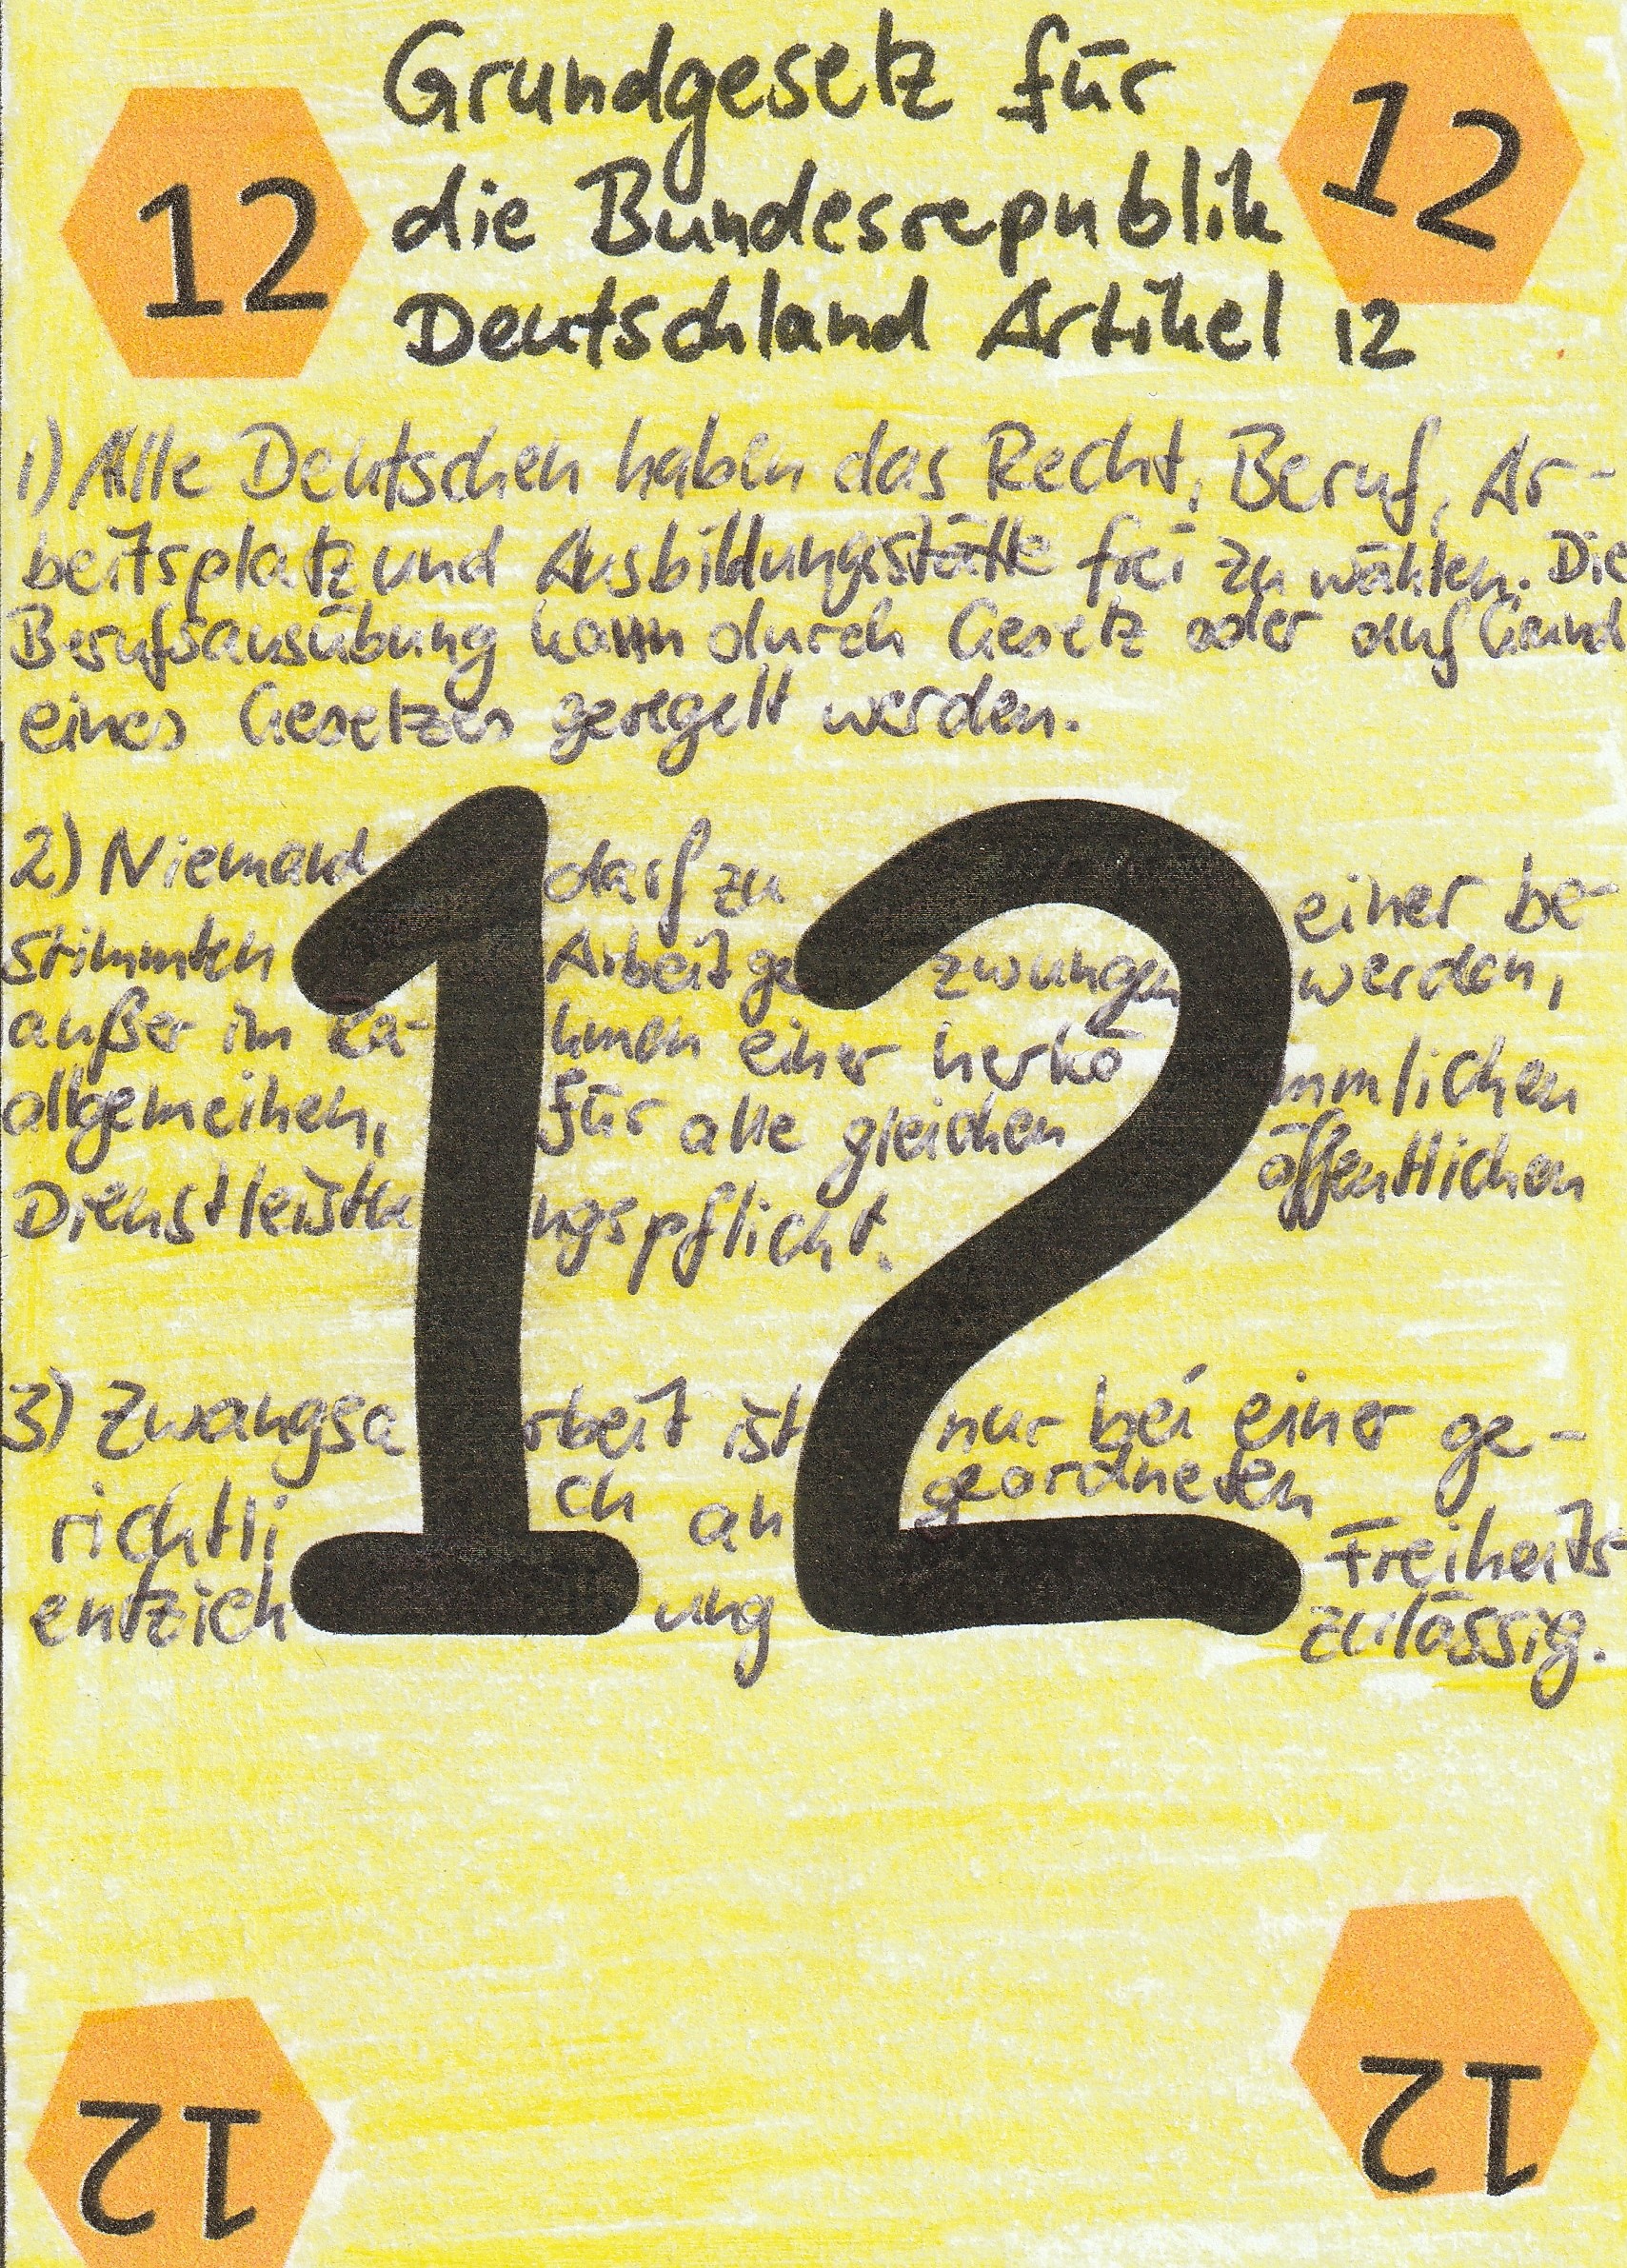 Grundgesetz für
die Bundesrepublik
Deutschland Artikel 12
12
12
1) Alle Deutschen haben das Recht, Beruf, Ar-
beitsplatz und Ausbildungsstätte frei zu wählen. Die
Berufsausübung kann durch Gesetz oder auf Grund
eines Gesetzes geregelt werden.
12
2) Niemand darf zu einer be-
stimmten Arbeit gezwungen werden,
außer im Ra- hmen einer herkömmlichen
allgemeinen, für alle gleichen öffentlichen
Dienstleistungspflicht.
3) Zwangsarbeit ist nur bei einer ge-
richtlich angeordneten Freiheits-
entziehung zulässig.
12
12